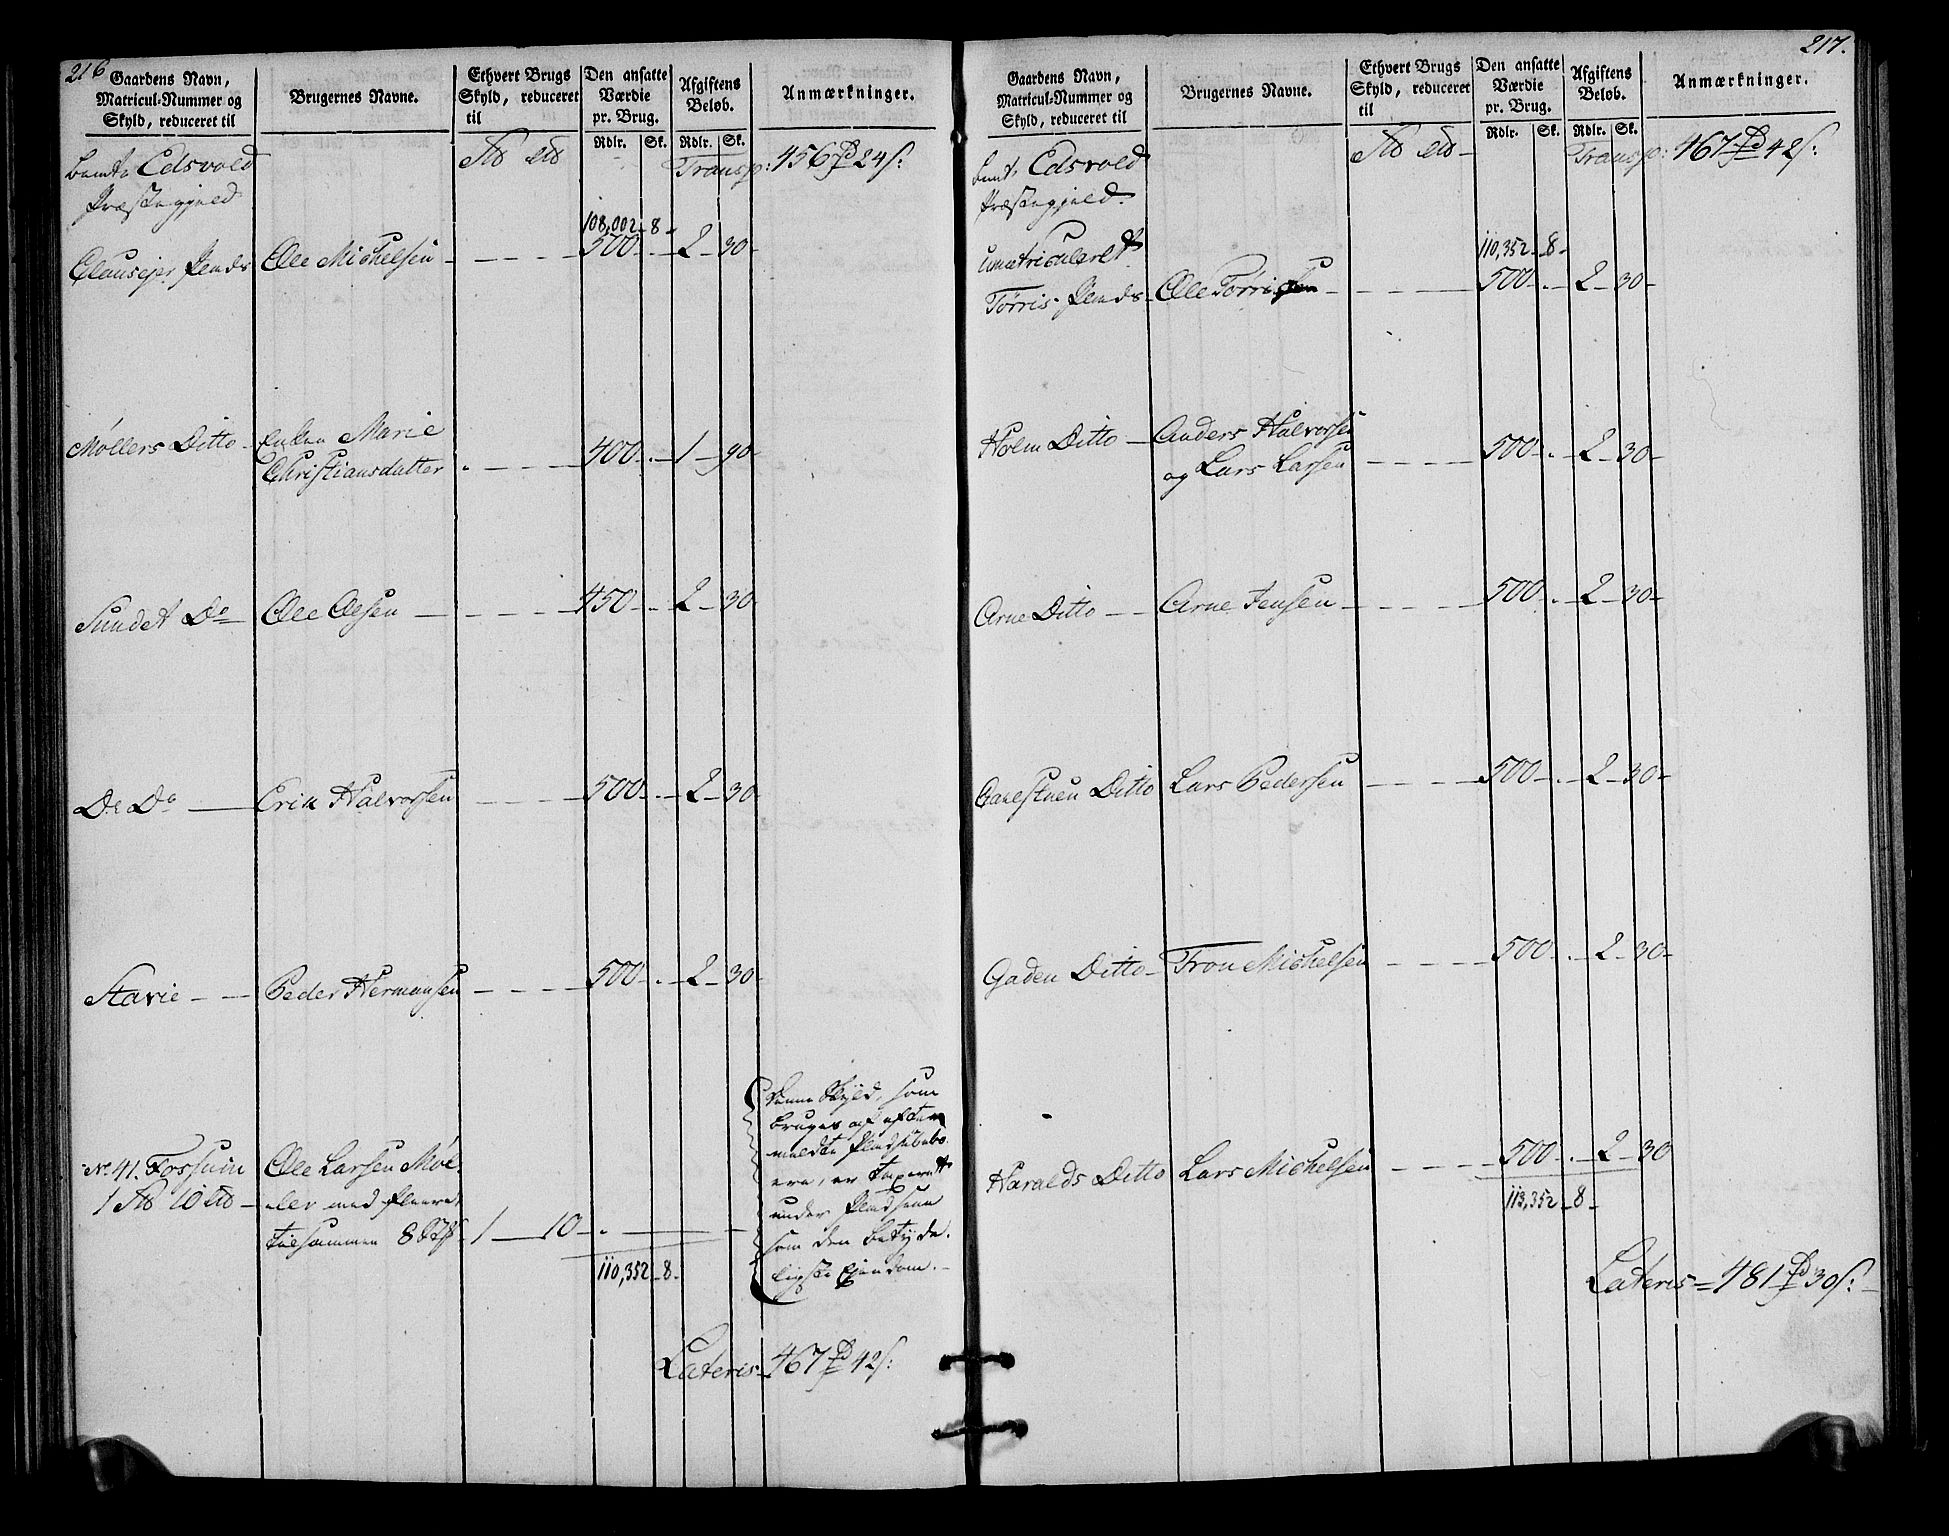 216
Gaardens Navn, Matricul-Nummer og Skyld, reduceret til
Brugernes Navne.
Ethvert Brugs Skyld, reduceret til
Den ansatte Værdie pr. Brug.
Afgiftens Beløb.
Anmærkninger.
Rdlr. Sk. Rdlr. Sk.
Edsvold Transp: 456 24 s:
Præstegjeld
108,002 - 8 -
Ole Michelsen - 500 - . - 2 - 30 -
Møllers Ditto - Enken Marie
Christiansdatter - 400 - . - 1 - 90 -
Sundet Do - Ole Olsen - 450 - . - 2 - 30 -
Do Do - Erik Halvorsen - 500 - . - 2 - 30 -
Stavie - Peder Hermansen - 500 - . - 2 - 30 -
No. 41. Fossum Ole Larsen Møl-
1 10 - ler med fleere
tilsammen 8 - 1 - 10 -
Denne Skyld, som
bruges af efter
meldte Pladsebebo-
ere, er taxeret
under Pladsene
som den betyde-
ligste Eiendom. -
110,352 - 8 -
Lateris - 467 42 s:
217.
Gaardens Navn, Matricul-Nummer og Skyld, reduceret til
Brugernes Navne.
Ethvert Brugs Skyld, reduceret til
Den ansatte Værdie pr. Brug.
Afgiftens Beløb.
Anmærkninger.
Rdlr. Sk. Rdlr. Sk.
Edsvold Transp: 467 42 s:
Præstegjeld.
Umatriculeret 110,352 - 8 -
Tørris Plads - Ole Tørrisen - 500 - . - 2 - 30 -
Holm Ditto - Anders Halvorsen
og Lars Larsen - 500 - . - 2 - 30 -
Arne Ditto - Arne Jensen - 500 - . - 2 - 30 -
Ditto Lars Pedersen - 500 - . - 2 - 30 -
Gaden Ditto - Tron Michelsen - 500 - . - 2 - 30 -
Haralds Ditto Lars Michelsen - 500 - . - 2 - 30
113,352 - 8 -
Lateris - 481 30 s: